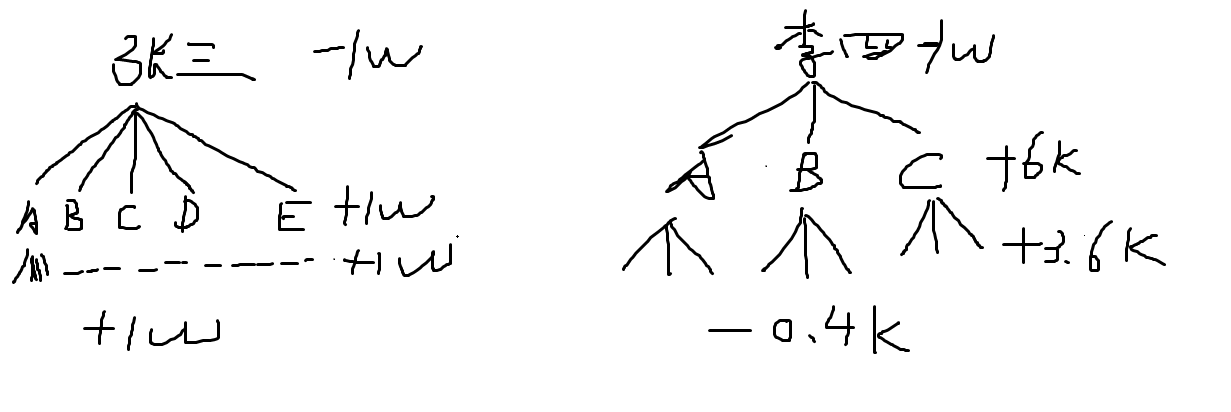 张三 -1W
A B C D E +1W
+1W
+1W
李四 -1W
A B C +6K
+3.6K
-0.4K